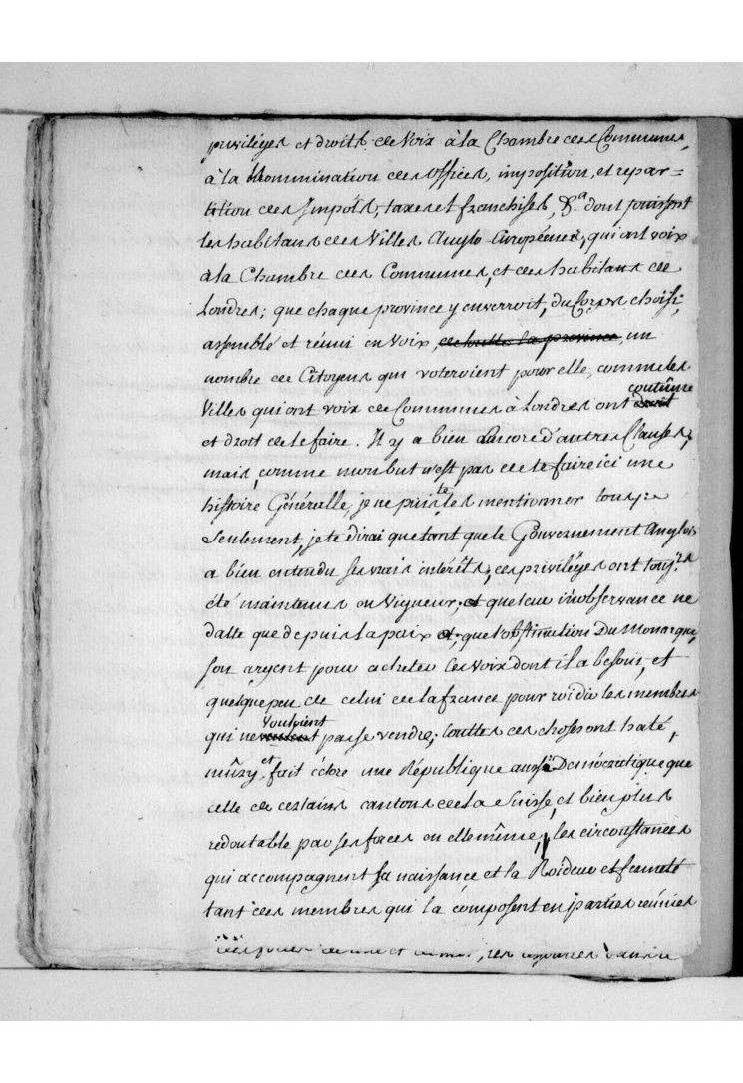 privilèges et droits de Voix à la Chambre des Communes,
à la Nommination des offices, imposition, et repar=
tition des Impôts, taxes et franchises, &.a dont jouissent
les habitans des Villes Anglo-Européenes, qui ont voix
à la Chambre des Communes, et des habitans de
Londres; que chaque province y enverroit, du Corps choisi,
assemblé et réuni en Voix, de toutte la province, un
nombre de Citoyens qui voteroient pour elle, comme les
Villes qui ont voix de Communes à Londres ont droit coutûme
et droit de le faire. Il y a bien Encore d'autres Clauses,
mais, comme mon but n'est pas de te faire ici une
histoire Générelle, je ne puis te les mentionner tous:
Seulement, je te dirai que tant que le Gouvernement Anglois
a bien entendu ses vrais intérêts, ces privilèges ont touj.rs
été maintenus en Vigueur, et que leur inobservance ne
datte que depuis la paix et, que l'obstination Du Monarque,
son argent pour acheter les Voix dont il a besoin, et
quelque peu de celui de la france pour roidir les membres
qui ne veulent vouloient pas se vendre, touttes ces choses ont haté,
mûry et fait éclore une République aussi Démocratique que
celle de certains cantons de la Suisse, et bien plus
redoutable par ses forces en elle même, les circonstances
qui accompagnent sa naissance et la Roideur et fermeté
tant des membres qui la composent en parties réunies